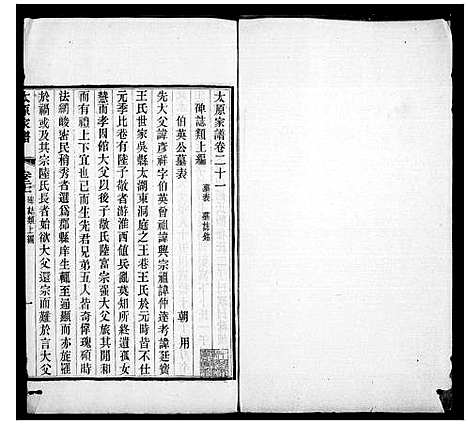 太原家譜卷二十一
碑誌類上編 墓表 墓誌銘
伯英公墓表
朝用
先大父諱彥祥字伯英曾祖諱興宗祖諱仲達考諱廷寶
王氏世家吳縣太湖東洞庭之王巷王氏於元時皆不仕
元季比巷有陸子敬者游淮西值兵亂莫知所終遺孤女
慧而孝四傳于敬氏陸富宗強大父旅其間和
而有禮上下宜也已而生先君兄弟五人皆奇偉瑰碩時
法網峻密民稍秀者選為郡縣庠生輒至通顯而亦旋罹
於禍或及其宗陸氏長者始欲大父還宗而難於言大父
太原家譜 卷二十一 碑誌類上編 一